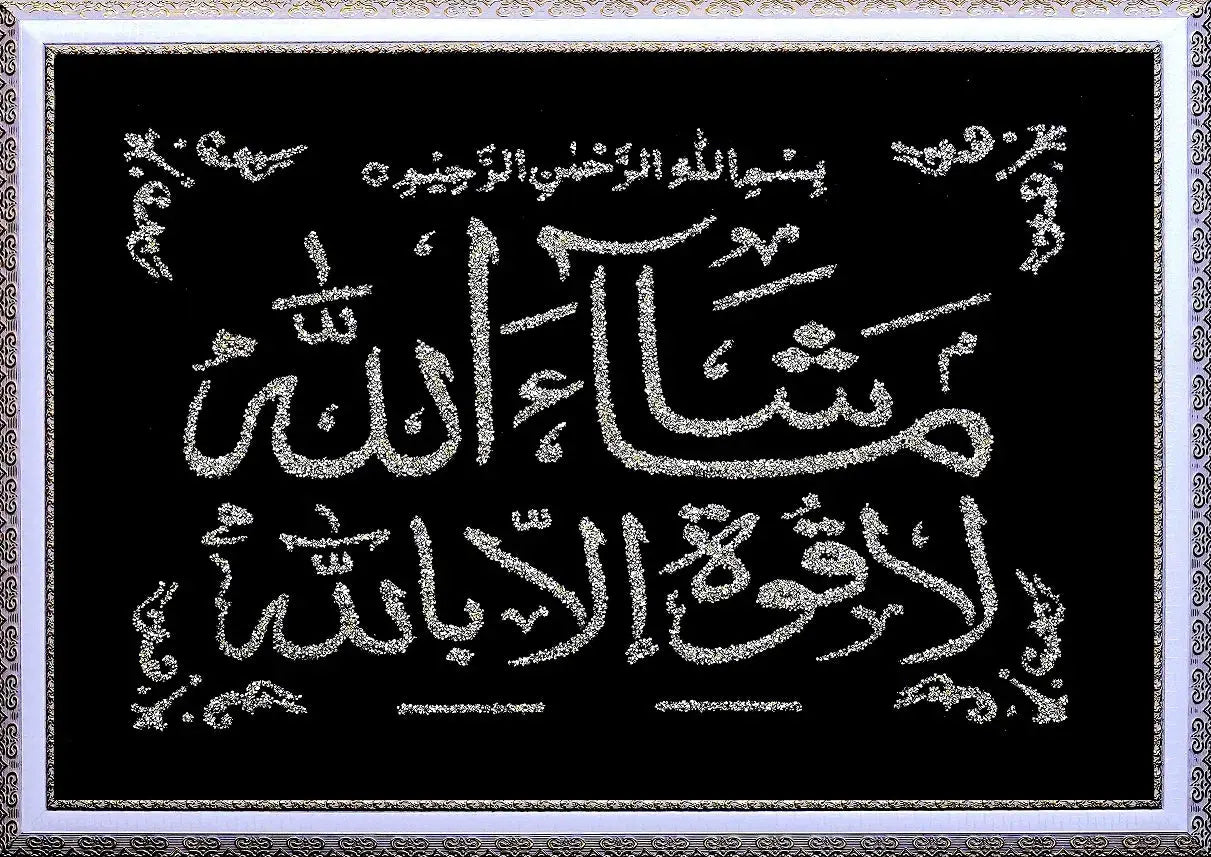 بِسْمِ اللهِ الرَّحْمٰنِ الرَّحِيْمِ ○
مَاشَآءَ اللّٰهُ
لَا قُوَّةَ اِلَّا بِاللّٰهِ